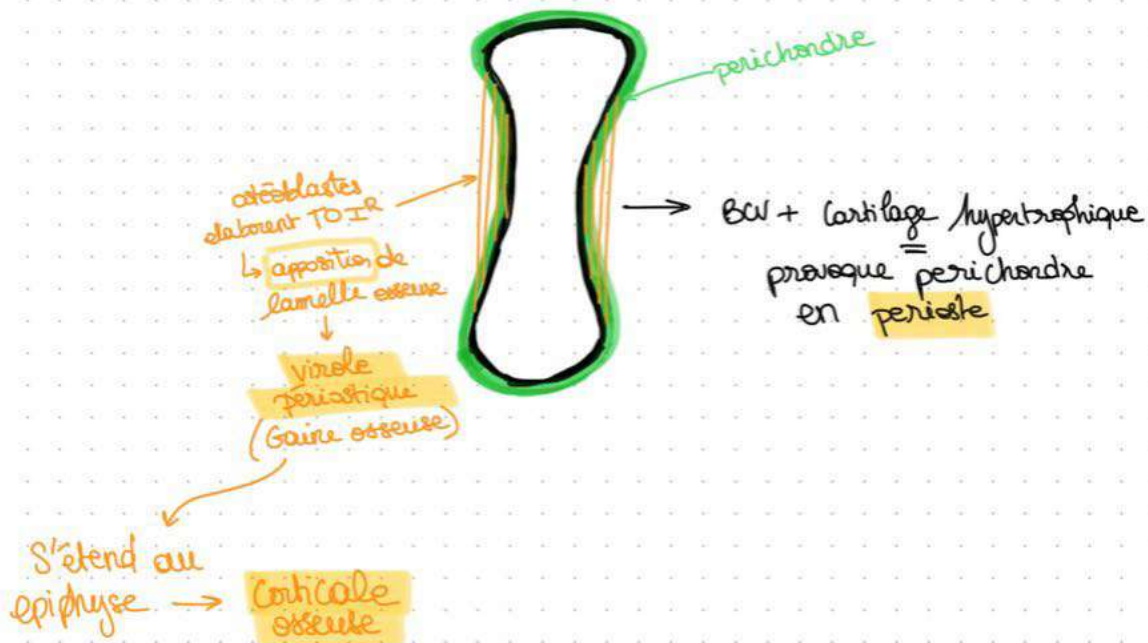 perichondre
ostéoblastes
elaborent TO I^R
↳ apposition de
lamelle osseuse
↓
virole
périostique
(Gaine osseuse)
S'étend au
epiphyse → Corticale
osseuse
→ BCV + Cartilage hypertrophique
=
provoque perichondre
en perioste